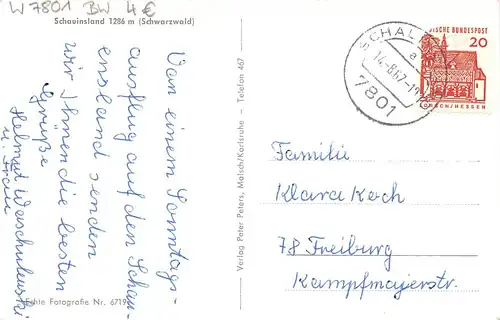 W 7801 BW 4 €
Schauinsland 1286 m (Schwarzwald)
Von einem Sonntags-
ausflug auf den Schau-
ensland senden
wir Ihnen die besten
Grüße
Helmut Waschulewski
u. Frau
Echte Fotografie Nr. 6719
Verlag Peter Peters, Malsch/Karlsruhe – Telefon 467
SCHAL
a
14.-8.67.-1
7801
DEUTSCHE BUNDESPOST
20
LORSCH/HESSEN
Familie
Klara Koch
78 Freiburg
Kampfmajerstr.